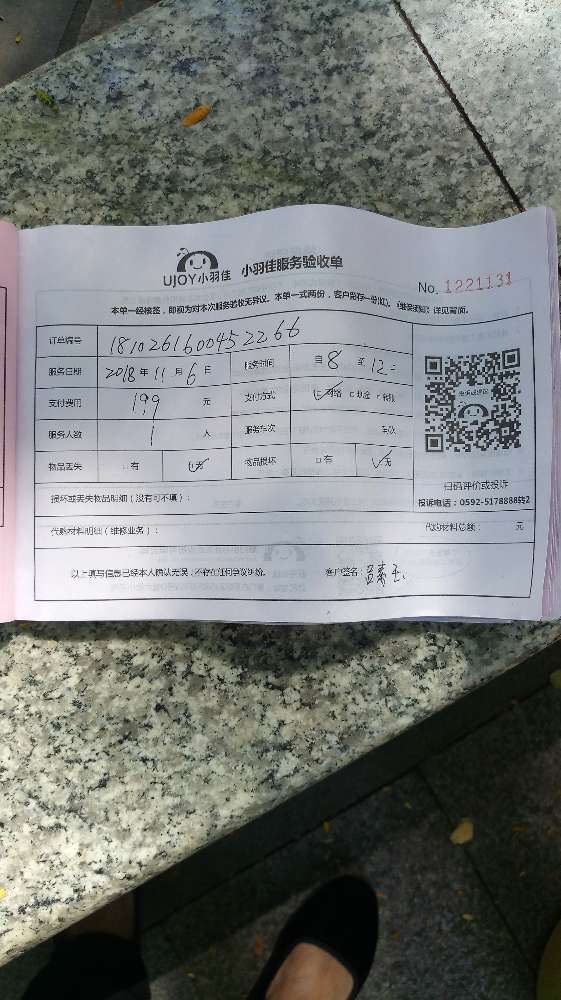 UJOY小羽佳 小羽佳服务验收单
No. 1221131
本单一经核签，即视为对本次服务验收无异议。本单一式两份，客户留存一份(红)。《维保须知》详见背面。
订单编号 181026160045 2266
服务日期 2018 年 11 月 6 日 服务时间 自 8 至 12:
支付费用 199 元 支付方式 网络 现金 转账
服务人数 1 人 服务车次 车次
物品丢失 □有 □无 物品损坏 □有 □无
投诉或建议
扫码评价或投诉
投诉电话：0592-5178888转2
损坏或丢失物品明细（没有可不填）：
代购材料明细（维修业务）： 代购材料总额： 元
以上填写信息已经本人确认无误，不存在任何争议纠纷。 客户签名：